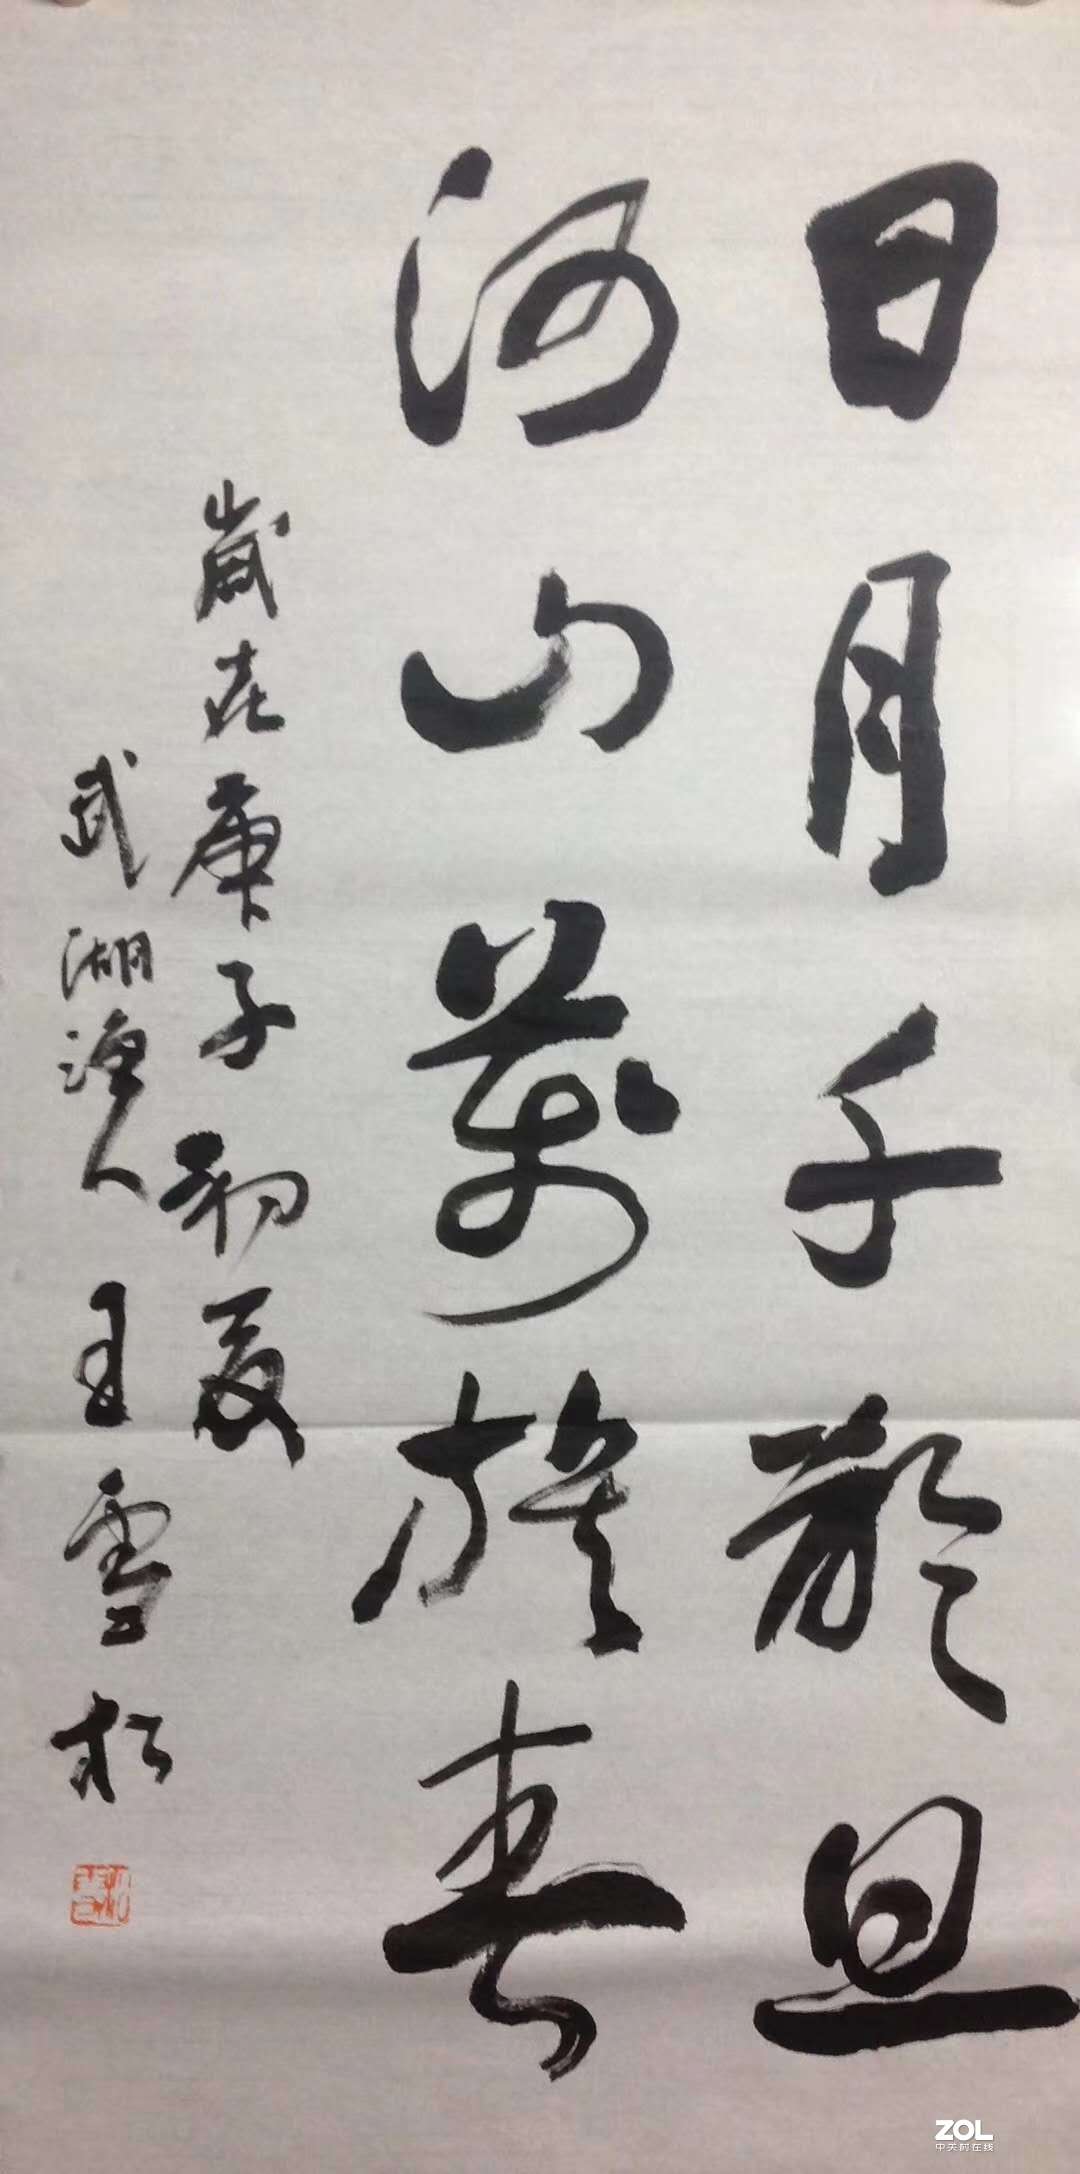 日月千龄旦
河山萬族春
歲在庚子初夏
武湖漁人王雪松
ZOL
中关村在线